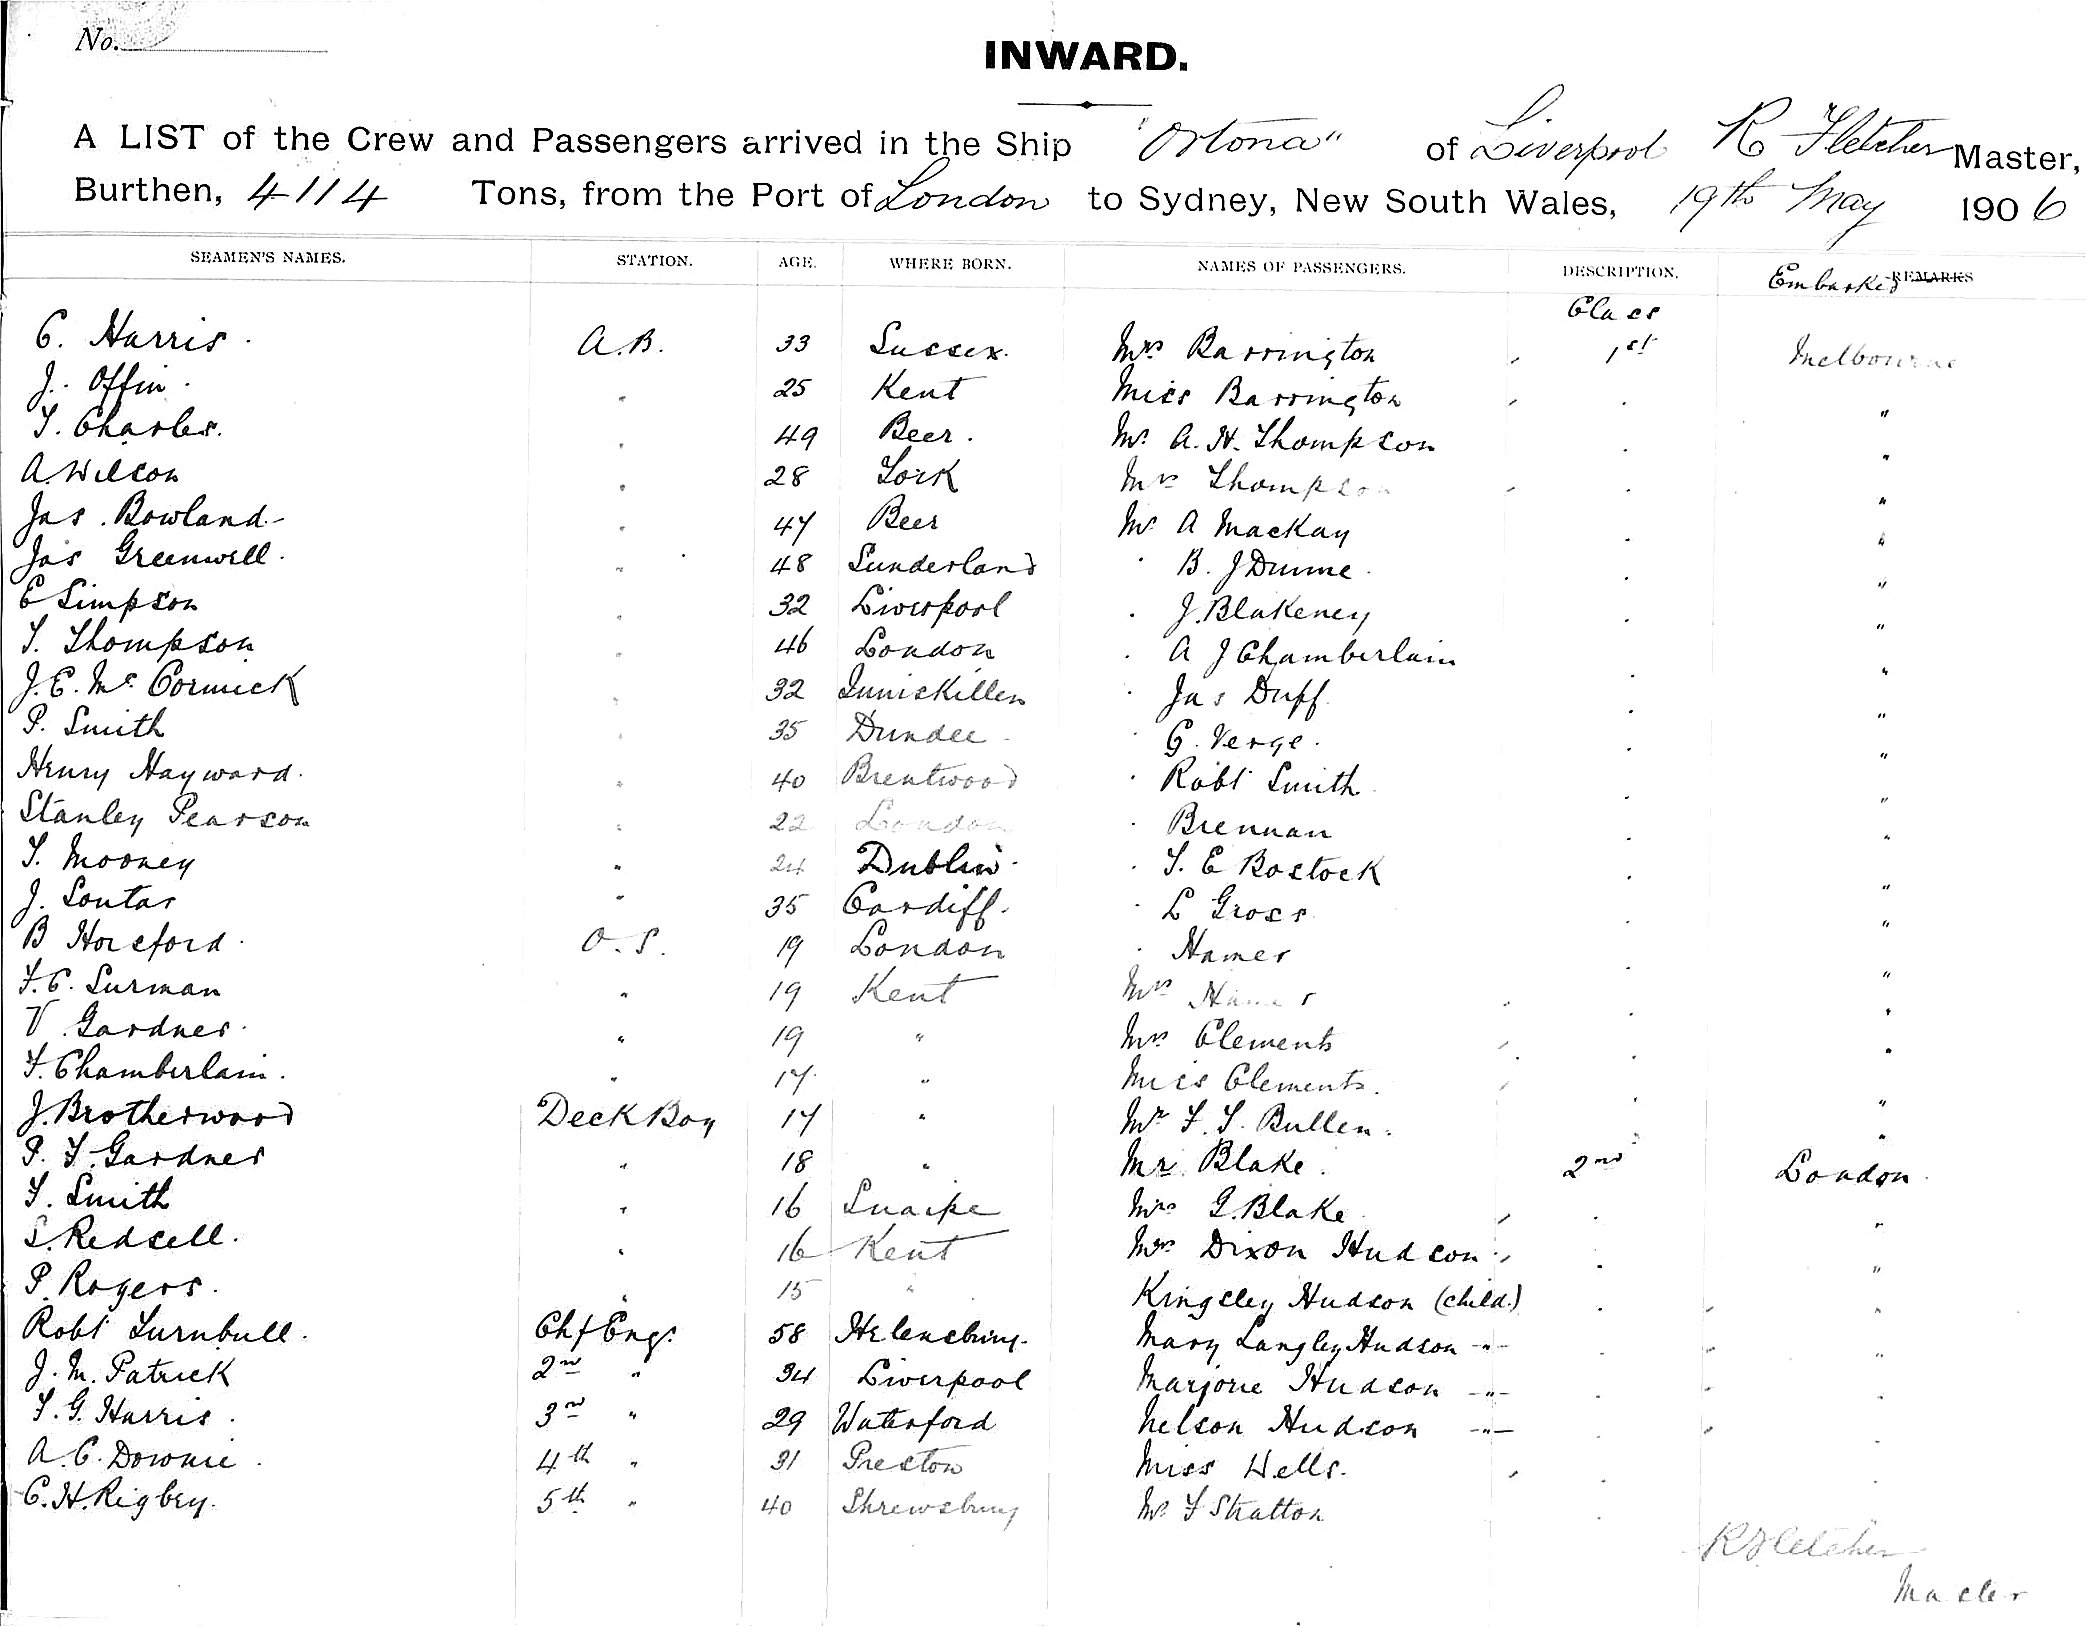 No.
INWARD.
A LIST of the Crew and Passengers arrived in the Ship "Ortona" of Liverpool R Fletcher Master,
Burthen, 4114 Tons, from the Port of London to Sydney, New South Wales, 19th May 1906
SEAMEN'S NAMES. STATION. AGE. WHERE BORN. NAMES OF PASSENGERS. DESCRIPTION. Embarked REMARKS
Class
C. Harris. A.B. 33 Sussex. Mrs Barrington 1st Melbourne
J. Offin. " 25 Kent Miss Barrington " "
T. Charles. " 49 Beer. Mr. A. H. Thompson " "
A. Wilson " 28 York Mrs Thompson " "
Jas. Bowland " 47 Beer Mr A MacKay " "
Jas Greenwell. " 48 Sunderland " B. J Dunne. " "
E Simpson " 32 Liverpool " J. Blakeney " "
T. Thompson " 46 London " A J Chamberlain " "
J. E. Mc Cormick " 32 Inniskillen " Jas Duff " "
P. Smith " 35 Dundee " G. Verge. " "
Henry Hayward. " 40 Brentwood " Robt Smith " "
Stanley Pearson " 22 London " Brennan " "
T. Mooney " 24 Dublin " T. E Bostock " "
J. Soutar " 35 Cardiff. " L Gross " "
B Horsford. O.S. 19 London " Hamer " "
F. C. Surman " 19 Kent Mrs Hamer " "
V. Gardner. " 19 " Mrs Clements " "
F. Chamberlain. " 17 " Miss Clements. " "
J. Brotherwood Deck Boy 17 " Mr F. S. Bullen. " "
P. F. Gardner " 18 " Mr. Blake. 2nd London
F. Smith " 16 Snaipe Mrs G. Blake " "
S. Redsell. " 16 Kent Mrs Dixon Hudson " "
P. Rogers. " 15 " Kingsley Hudson (child.) " "
Robt Turnbull. Chf Engr 58 Helensburg. Mary Langley Hudson -"- " "
J. M. Patrick 2nd " 34 Liverpool Marjorie Hudson -"- " "
T. G. Harris. 3rd " 29 Waterford Nelson Hudson -"- " "
A. C. Downie. 4th " 31 Preston Miss Wells. " "
C. H. Rigbey. 5th " 40 Shrewsbury Mr F Stratton "
R Fletcher
Master